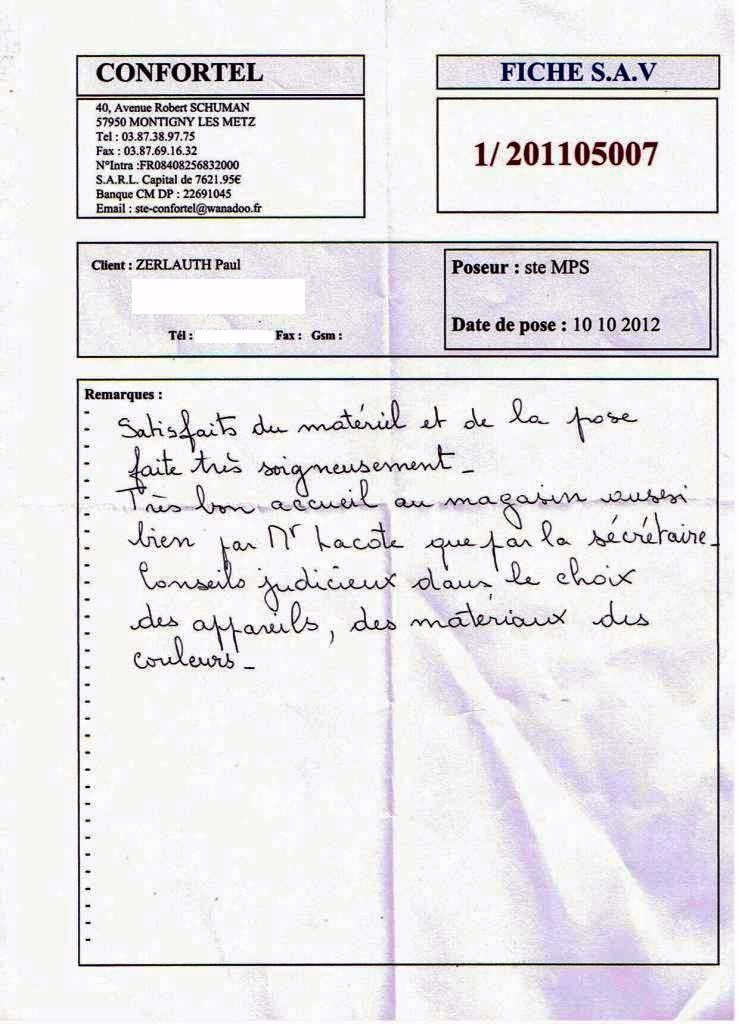 CONFORTEL
40, Avenue Robert SCHUMAN
57950 MONTIGNY LES METZ
Tel : 03.87.38.97.75
Fax : 03.87.69.16.32
N°Intra :FR08408256832000
S.A.R.L. Capital de 7621.95€
Banque CM DP : 22691045
Email : ste-confortel@wanadoo.fr
FICHE S.A.V
1/ 201105007
Client : ZERLAUTH Paul
Tél : Fax : Gsm :
Poseur : ste MPS
Date de pose : 10 10 2012
Remarques :
Satisfaits du matériel et de la pose
faite très soigneusement_
Très bon accueil au magasin aussi
bien par Mr Lacote que par la sécrétaire_
Conseils judicieux dans le choix
des appareils, des matériaux des
couleurs_